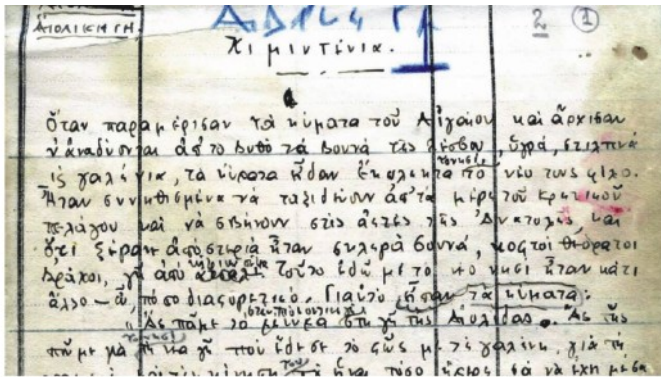 ΑΙΟΛΙΚΗ ΓΗ. 2 1
Κιμιντένια.
Ὅταν παραμέρισαν τὰ κύματα τοῦ Αἰγαίου καὶ ἄρχισαν
ν' ἀναδύονται ἀπ' τὸ βυθὸ τὰ βουνὰ τῆς Λέσβου, ὑγρά, στιλπνὰ
γαλήνια, τὰ κύματα εἶδαν ἔκπληκτα τὸ νησί, τὸ νέο τους φίλο.
Ἦταν συνηθισμένα νὰ ταξιδεύουν ἀπ' τὰ μέρη τοῦ Κρητικοῦ
πελάγου καὶ νὰ σβήνουν στὶς ἀκτὲς τῆς Ἀνατολῆς, καὶ
ὅ,τι ξέραν ἀπὸ στεριὰ ἦταν σκληρὰ βουνά, κοφτοὶ θεόρατοι
βράχοι, γῆ ἀπὸ Τοῦτο ἐδῶ μὲ τὸ νησὶ ἦταν κάτι
ἄλλο – ὤ, πόσο διαφορετικό. Γιαυτὸ εἶπαν τὰ κύματα:
"Ἂς πᾶμε τὸ στὴ γῆ τῆς Αἰολίδας. Ἂς τῆς
ποῦμε γιὰ γῆ ποὺ ἔδεσε τὸ φῶς μὲ τὴ γαλήνη, γιὰ τὴ